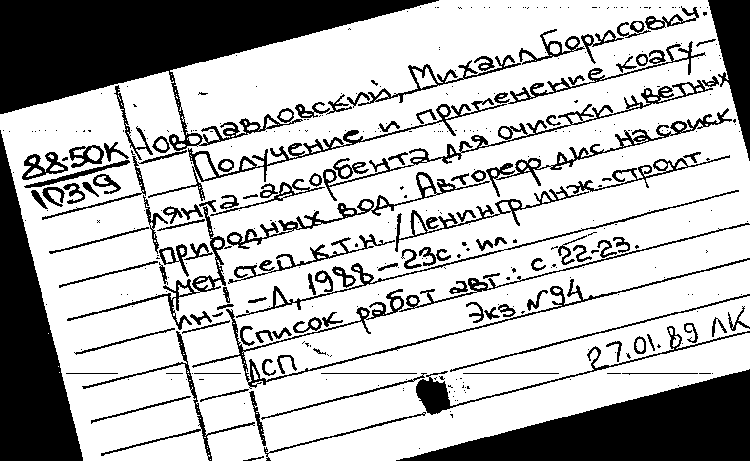 88-50К
10319
Новопавловский, Михаил Борисович.
Получение и применение коагу-
лянта-адсорбента для очистки цветных
природных вод: Автореф. дис. на соиск.
учен. степ. к.т.н. / Ленингр. инж.-строит.
ин-т. - Л, 1988 - 23с.: ил.
Список работ авт.: с.22-23.
Экз. №94.
ДСП
27.01.89 ЛК